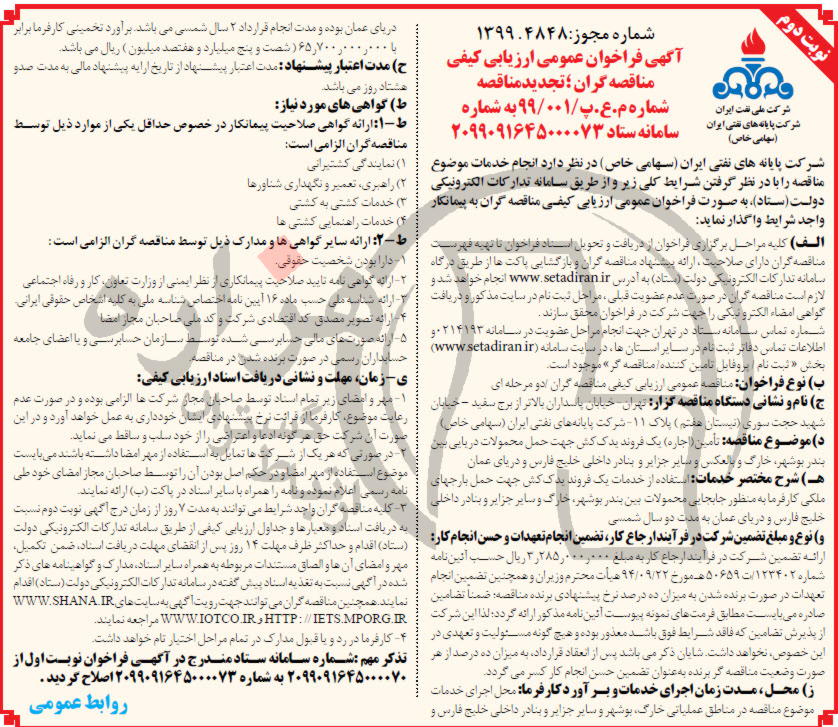 نوبت دوم
شماره مجوز: ۱۳۹۹.۴۸۴۸
آگهی فراخوان عمومی ارزیابی کیفی
مناقصه گران ؛ تجدیدمناقصه
شماره م.ع.پ/۹۹/۰۰۱ به شماره
سامانه ستاد ۲۰۹۹۰۹۱۶۴۵۰۰۰۰۷۳
شرکت ملی نفت ایران
شرکت پایانه های نفتی ایران
(سهامی خاص)
شرکت پایانه های نفتی ایران (سهامی خاص) در نظر دارد انجام خدمات موضوع
مناقصه را با در نظر گرفتن شرایط کلی زیر و از طریق سامانه تدارکات الکترونیکی
دولت (ستاد)، به صورت فراخوان عمومی ارزیابی کیفی مناقصه گران به پیمانکار
واجد شرایط واگذار نماید:
الف) کلیه مراحل برگزاری فراخوان از دریافت و تحویل اسناد فراخوان تا تهیه فهرست
مناقصه گران دارای صلاحیت، ارائه پیشنهاد مناقصه گران و بازگشایی پاکت ها از طریق درگاه
سامانه تدارکات الکترونیکی دولت (ستاد) به آدرس www.setadiran.ir انجام خواهد شد و
لازم است مناقصه گران در صورت عدم عضویت قبلی، مراحل ثبت نام در سایت مذکور و دریافت
گواهی امضاء الکترونیکی را جهت شرکت در فراخوان محقق سازند.
شماره تماس سامانه ستاد در تهران جهت انجام مراحل عضویت در سامانه ۰۲۱۴۱۹۳و
اطلاعات تماس دفاتر ثبت نام در سایر استان ها، در سایت سامانه (www.setadiran.ir)
بخش « ثبت نام / پروفایل تامین کننده/ مناقصه گر» موجود است.
ب) نوع فراخوان: مناقصه عمومی ارزیابی کیفی مناقصه گران /دو مرحله ای
ج) نام و نشانی دستگاه مناقصه گزار: تهران -خیابان پاسداران بالاتر از برج سفید – خیابان
شهید حجت سوری (نیستان هفتم ) پلاک ۱۱- شرکت پایانه‌های نفتی ایران (سهامی خاص)
د) موضوع مناقصه: تأمین (اجاره) یک فروند یدک کش جهت حمل محمولات دریایی بین
بندر بوشهر، خارگ و بالعکس و سایر جزایر و بنادر داخلی خلیج فارس و دریای عمان
هـ) شرح مختصر خدمات: استفاده از خدمات یک فروند یدک کش جهت حمل بارجهای
ملکی کارفرما به منظور جابجایی محمولات بین بندر بوشهر، خارگ و سایر جزایر و بنادر داخلی
خلیج فارس و دریای عمان به مدت دو سال شمسی
و) نوع و مبلغ تضمین شرکت در فرآیند ارجاع کار، تضمین انجام تعهدات و حسن انجام کار:
ارائه تضمین شرکت در فرآیند ارجاع کار به مبلغ ۳٫۲۸۵٫۰۰۰٫۰۰۰ ریال حسب آئین‌نامه
شماره ۱۲۳۴۰۲/ت ۵۰۶۵۹ هـ مورخ ۹۴/۰۹/۲۲ هیأت محترم وزیران و همچنین تضمین انجام
تعهدات در صورت برنده شدن به میزان ده درصد نرخ پیشنهادی برنده مناقصه؛ ضمناً تضامین
صادره می‌بایست مطابق فرمت‌های نمونه پیوست آئین‌نامه مذکور ارائه گردد؛ لذا این شرکت
از پذیرش تضامین که فاقد شرایط فوق باشد معذور بوده و هیچ گونه مسئولیت و تعهدی در
این خصوص، نخواهد داشت. شایان ذکر می باشد پس از انعقاد قرارداد، به میزان ده درصد از هر
صورت وضعیت مناقصه گر برنده به عنوان تضمین حسن انجام کار کسر می گردد.
ز) محل، مدت زمان اجرای خدمات و برآورد کارفرما: محل اجرای خدمات
موضوع مناقصه در مناطق عملیاتی خارگ، بوشهر و سایر جزایر و بنادر داخلی خلیج فارس و
دریای عمان بوده و مدت انجام قرارداد ۲ سال شمسی می باشد. برآورد تخمینی کارفرما برابر
با ۶۵٫۷۰۰٫۰۰۰٫۰۰۰ ( شصت و پنج میلیارد و هفتصد میلیون ) ریال می باشد.
ح) مدت اعتبار پیشنهاد: مدت اعتبار پیشنهاد از تاریخ ارایه پیشنهاد مالی به مدت صدو
هشتاد روز می باشد.
ط) گواهی های مورد نیاز:
ط-۱: ارائه گواهی صلاحیت پیمانکار در خصوص حداقل یکی از موارد ذیل توسط
مناقصه گران الزامی است:
۱) نمایندگی کشتیرانی
۲) راهبری، تعمیر و نگهداری شناورها
۳) خدمات کشتی به کشتی
۴) خدمات راهنمایی کشتی ها
ط-۲: ارائه سایر گواهی ها و مدارک ذیل توسط مناقصه گران الزامی است :
۱- دارا بودن شخصیت حقوقی.
۲-ارائه گواهی نامه تایید صلاحیت پیمانکاری از نظر ایمنی از وزارت تعاون، کار و رفاه اجتماعی
۳-ارائه شناسه ملی حسب ماده ۱۶ آیین نامه اختصاص شناسه ملی به کلیه اشخاص حقوقی ایرانی.
۴-ارائه تصویر مصدق کد اقتصادی شرکت و کد ملی صاحبان مجاز امضا
۵-ارائه صورت های مالی حسابرسی شده توسط سازمان حسابرسی و یا اعضای جامعه
حسابداران رسمی در صورت برنده شدن در مناقصه.
ی- زمان، مهلت و نشانی دریافت اسناد ارزیابی کیفی:
۱-مهر و امضای زیر تمام اسناد توسط صاحبان مجاز شرکت ها الزامی بوده و در صورت عدم
رعایت موضوع، کارفرما از قرائت نرخ پیشنهادی ایشان خودداری به عمل خواهد آورد و در این
صورت آن شرکت حق هر گونه ادعا و اعتراضی را از خود سلب و ساقط می نماید.
۲-در صورتی که هر یک از شرکت ها تمایل به استفاده از مهر امضا داشته باشند می بایست
موضوع استفاده از مهر امضا و در حکم اصل بودن آن را توسط صاحبان مجاز امضای خود طی
نامه رسمی اعلام نموده و نامه را همراه با سایر اسناد در پاکت (ب) ارائه نمایند.
۳-کلیه مناقصه گران واجد شرایط می توانند به مدت ۷ روز از زمان درج آگهی نوبت دوم نسبت
به دریافت اسناد و معیارها و جداول ارزیابی کیفی از طریق سامانه تدارکات الکترونیکی دولت
(ستاد) اقدام و حداکثر ظرف مهلت ۱۴ روز پس از انقضای مهلت دریافت اسناد، ضمن تکمیل،
مهر و امضای آن ها و الصاق مستندات مربوطه به همراه سایر اسناد، مدارک و گواهینامه های ذکر
شده در آگهی نسبت به تغذیه اسناد پیش گفته در سامانه تدارکات الکترونیکی دولت (ستاد) اقدام
نمایند. همچنین مناقصه گران می توانند جهت رویت آگهی به سایت های WWW.SHANA.IR
HTTP://IETS.MPORG.IR و WWW.IOTCO.IR مراجعه نمایند.
۴-کارفرما در رد و یا قبول مدارک در تمام مراحل اختیار تام خواهد داشت.
تذکر مهم :شماره سامانه ستاد مندرج در آگهی فراخوان نوبت اول از
۲۰۹۹۰۹۱۶۴۵۰۰۰۰۷۰ به شماره ۲۰۹۹۰۹۱۶۴۵۰۰۰۰۷۳ اصلاح گردید .
روابط عمومی